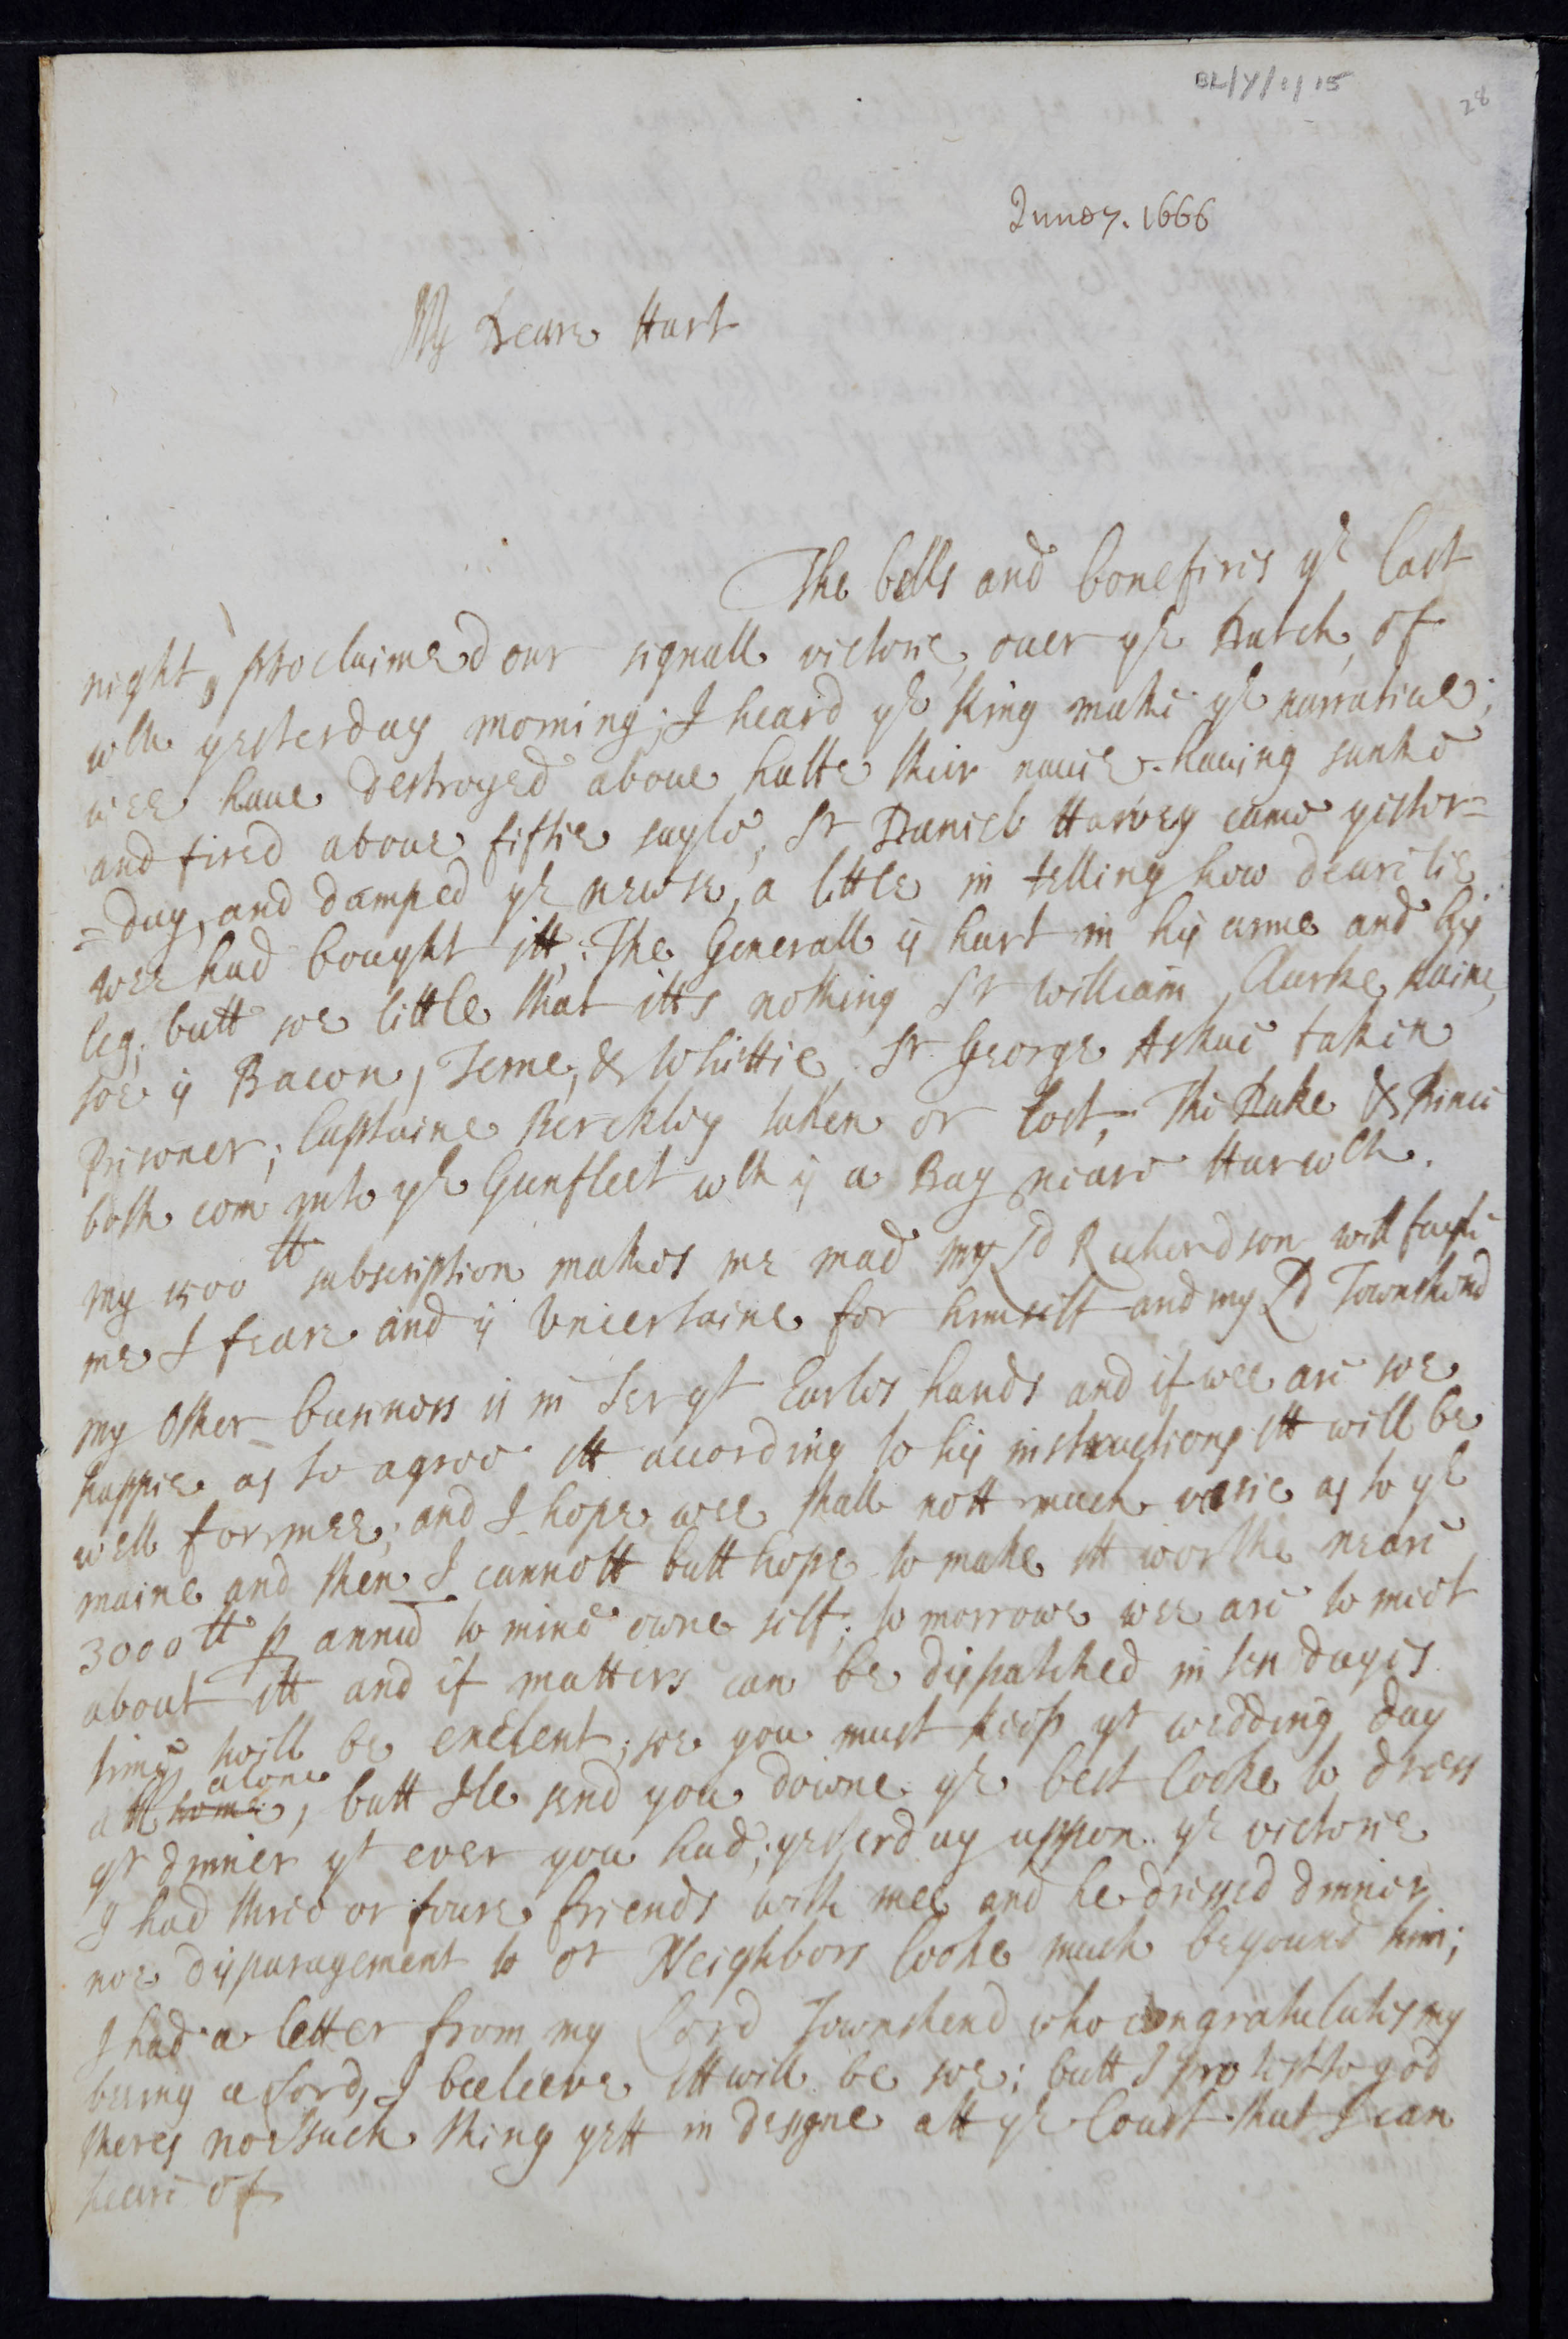 BL/Y/1/15
28
June 7. 1666
My Deare Hart
The bells and bonefires ye last
night, proclaimed our signall victorie, ouer ye Dutch, of
wch yesterday morning; I heard ye King make ye narratiue;
wee haue destroyed aboue halfe their nauie, hauing sunke
and fired aboue fiftie sayle, Sr Daniell Harvey came yester=
=day, and damped ye newse, a little in telling how dearelie
wee had bought itt; The Generall is hurt in his arme and his
leg; butt soe little that itts nothing Sr William Clarke slaine,
soe is Bacon, Terne, & Whittie, Sr George Askue taken
Prisoner; Captaine Berckley taken or lost, The Duke & Prince
both com into ye Gunfleet wch is a Bay neare Harwch.
my 1500tt subscription makes me mad my Ld Richerdson will fayle
me I feare and is Vncertaine for himselfe and my Ld Townshend
my other buisnors is in Sergt Earles hands and if wee are soe
happie as to agree itt according to his instructions itt will be
well for mee; and I hope wee shall nott much varie as to ye
maine and then I cannott butt hope to make itt worthe neare
3000tt p annū to mine owne self; to morrowe wee are to meet
about itt and if matters can be dispatched in ten dayes
time, twill be exelent; soe you must keep yt wedding day
att home alone, butt Ile send you downe ye best Cooke to dress
yt dinner yt ever you had; yesterday uppon ye victorie
I had three or foure friends with mee and he dressed dinner
noe disparagement to or Neighbors Cooke much beyound him;
I had a letter from my Lord Townshend who congratulates my
being a Lord, I beeleeve itt will be soe; butt I protest to god
theres noe such thing yett in designe att ye Court that I can
heare of